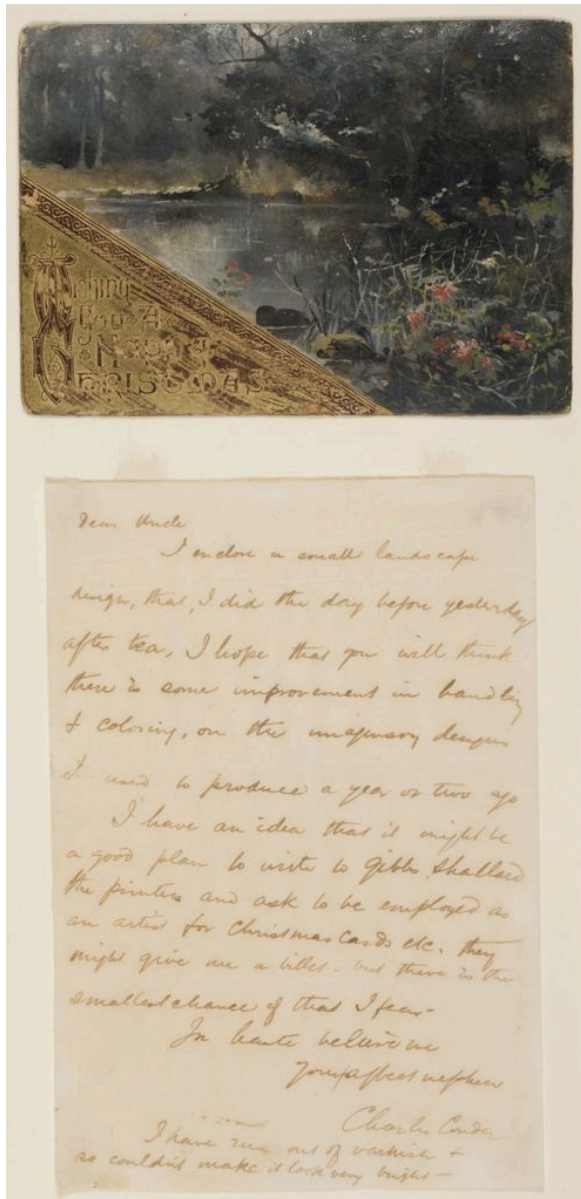 Wishing
You A
Happy
Christmas
Dear Uncle
I enclose a small landscape
design, that, I did the day before yesterday
after tea, I hope that you will think
there is some improvement in handling
& coloring, on the imaginary designs
I used to produce a year or two ago
I have an idea that it might be
a good plan to write to Gibbs Shallard
the printers and ask to be employed as
an artist for Christmas Cards etc. they
might give me a billet - but there is the
smallest chance of that I fear -
In haste believe me
Your affect nephew
Charles Conder
I have run out of varnish &
so couldn't make it look very bright -